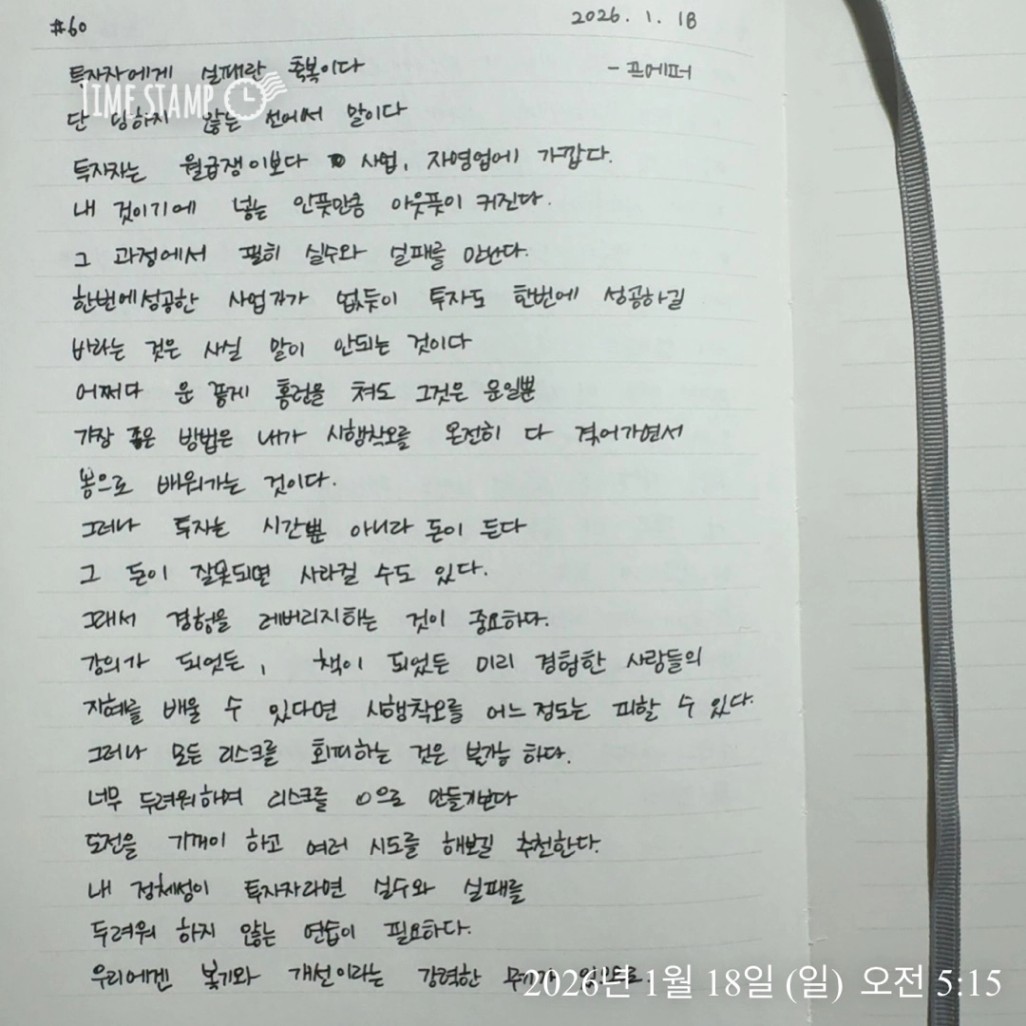 #60 2026. 1. 18
투자자에게 실패란 축복이다 - 프메퍼
TIME STAMP
단 망하지 않는 선에서 말이다
투자자는 월급쟁이보다 사업, 자영업에 가깝다.
내 것이기에 넣는 인풋만큼 아웃풋이 커진다.
그 과정에서 필히 실수와 실패를 만난다.
한번에 성공한 사업자가 없듯이 투자도 한번에 성공하길
바라는 것은 사실 말이 안되는 것이다
어쩌다 운 좋게 홍런을 쳐도 그것은 운일뿐
가장 좋은 방법은 내가 시행착오를 온전히 다 겪어가면서
몸으로 배워가는 것이다.
그러나 투자는 시간뿐 아니라 돈이 든다
그 돈이 잘못되면 사라질 수도 있다.
그래서 경험을 레버리지하는 것이 중요하다.
강의가 되었든, 책이 되었든 미리 경험한 사람들의
지혜를 배울 수 있다면 시행착오를 어느 정도는 피할 수 있다.
그러나 모든 리스크를 회피하는 것은 불가능 하다.
너무 두려워하여 리스크를 0으로 만들기보다
도전을 기꺼이 하고 여러 시도를 해보길 추천한다.
내 정체성이 투자자라면 실수와 실패를
두려워 하지 않는 연습이 필요하다.
우리에겐 복기와 개선이라는 강력한
2026년 1월 18일 (일) 오전 5:15